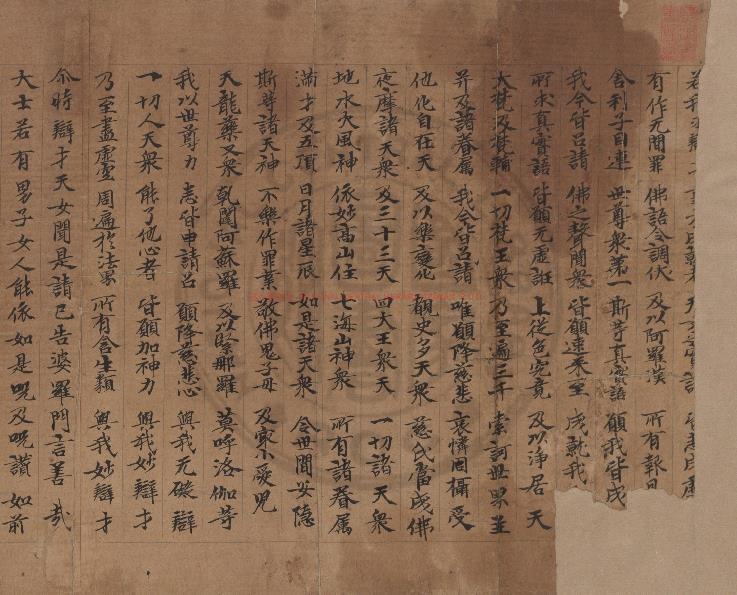 若我求辯才 事不成就者 天女之實語 皆悉成虛
有作无間罪 佛語令調伏 及以阿羅漢 所有報
舍利子目連 世尊衆第一 斯等真實語 願我皆成
我今皆召請 佛之聲聞衆 皆願速来至 成就我
所求真實語 皆願无虛誑 上從色究竟 及以淨居天
大梵及梵輔 一切梵王衆 乃至遍三千 索訶世界主
并及諸眷属 我今皆召請 唯願降慈悲 哀憐同攝受
他化自在天 及以樂變化 覩史多天衆 慈氏當成佛
夜摩諸天衆 及三十三天 四大王衆天 一切諸天衆
地水火風神 依妙高山住 七海山神衆 所有諸眷属
滿才及五頂 日月諸星辰 如是諸天衆 令世間安隱
斯等諸天神 不樂作罪業 敬佛鬼子母 及最小愛兒
天龍藥叉衆 乹闥阿蘇羅 及以緊那羅 莫呼洛伽等
我以世尊力 悉皆申請召 願降慈悲心 與我无礙辯
一切人天衆 能了他心者 皆願加神力 與我妙辯才
乃至盡虛空 周遍於法界 所有含生類 與我妙辯才
尒時辯才天女聞是請已告婆羅門言善哉
大士若有男子女人能依如是呪及呪讚如前